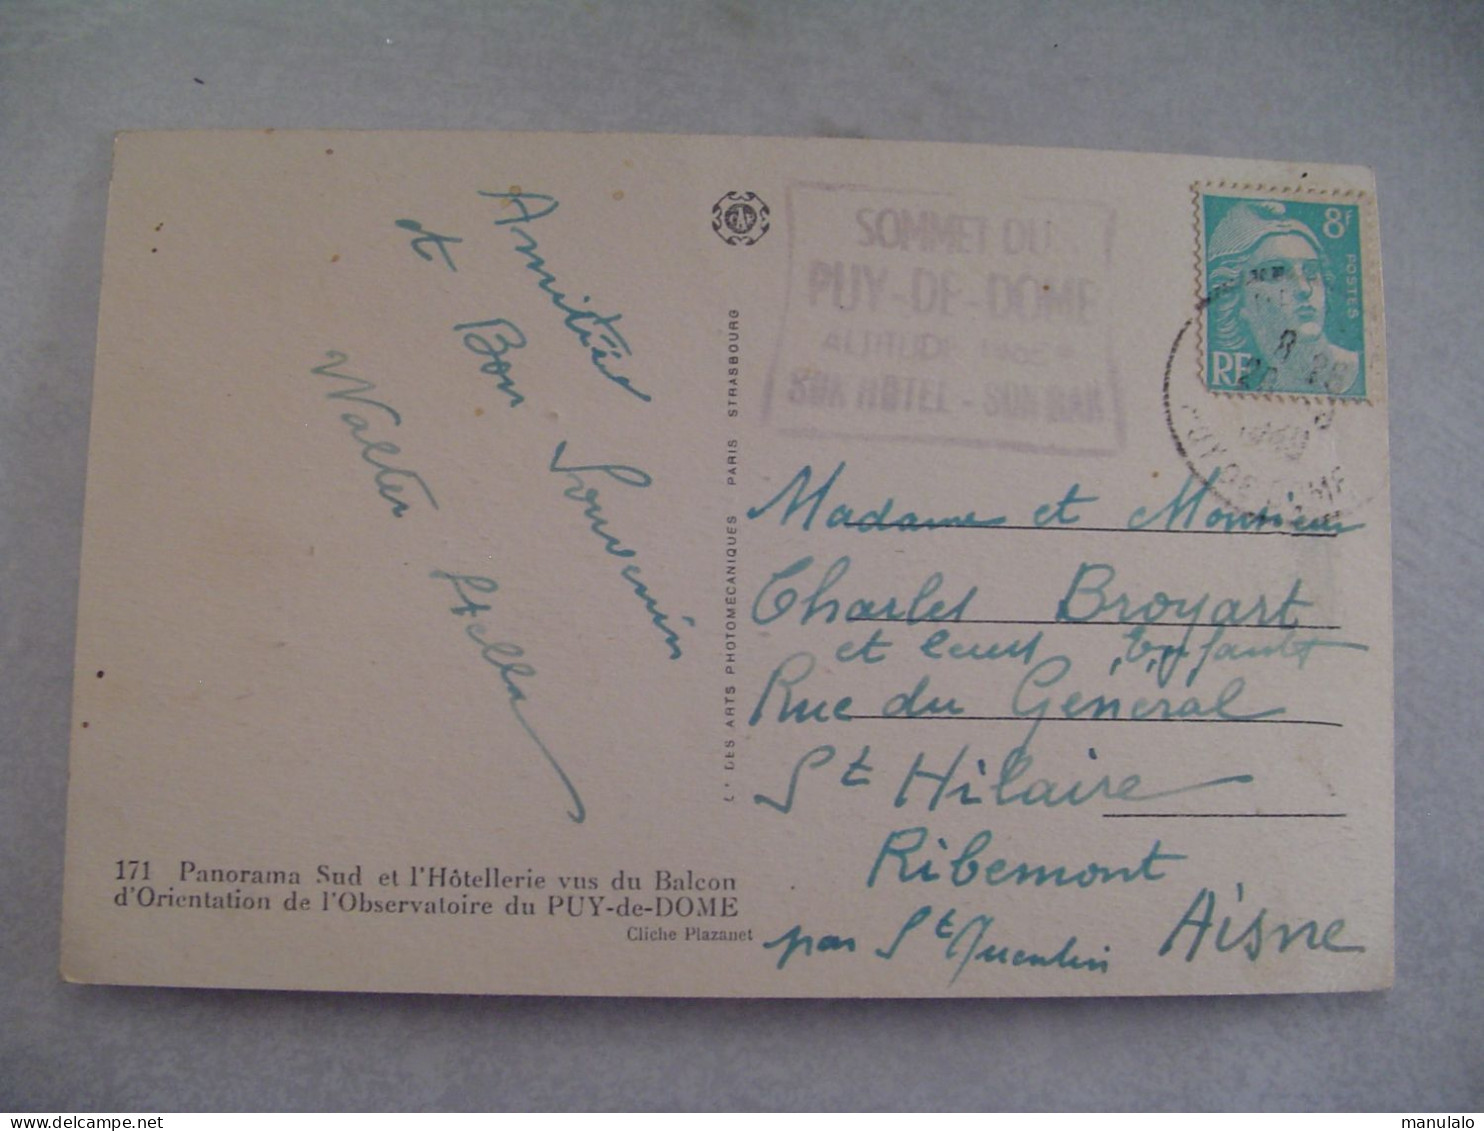 Amitiés
et Bon Souvenir
Walter Hella
SOMMET DU
PUY-DE-DOME
ALTITUDE
SON HOTEL - SON BAR
8f
POSTES
RF
8
1949
PUY DE DOME
Madame et Monsieur
Charles Broyart
et leurs Enfants
Rue du Général
St Hilaire
Ribemont
par St Quentin Aisne
DES ARTS PHOTOMÉCANIQUES PARIS STRASBOURG
171 Panorama Sud et l'Hôtellerie vus du Balcon
d'Orientation de l'Observatoire du PUY-de-DOME
Cliche Plazanet
manulalo